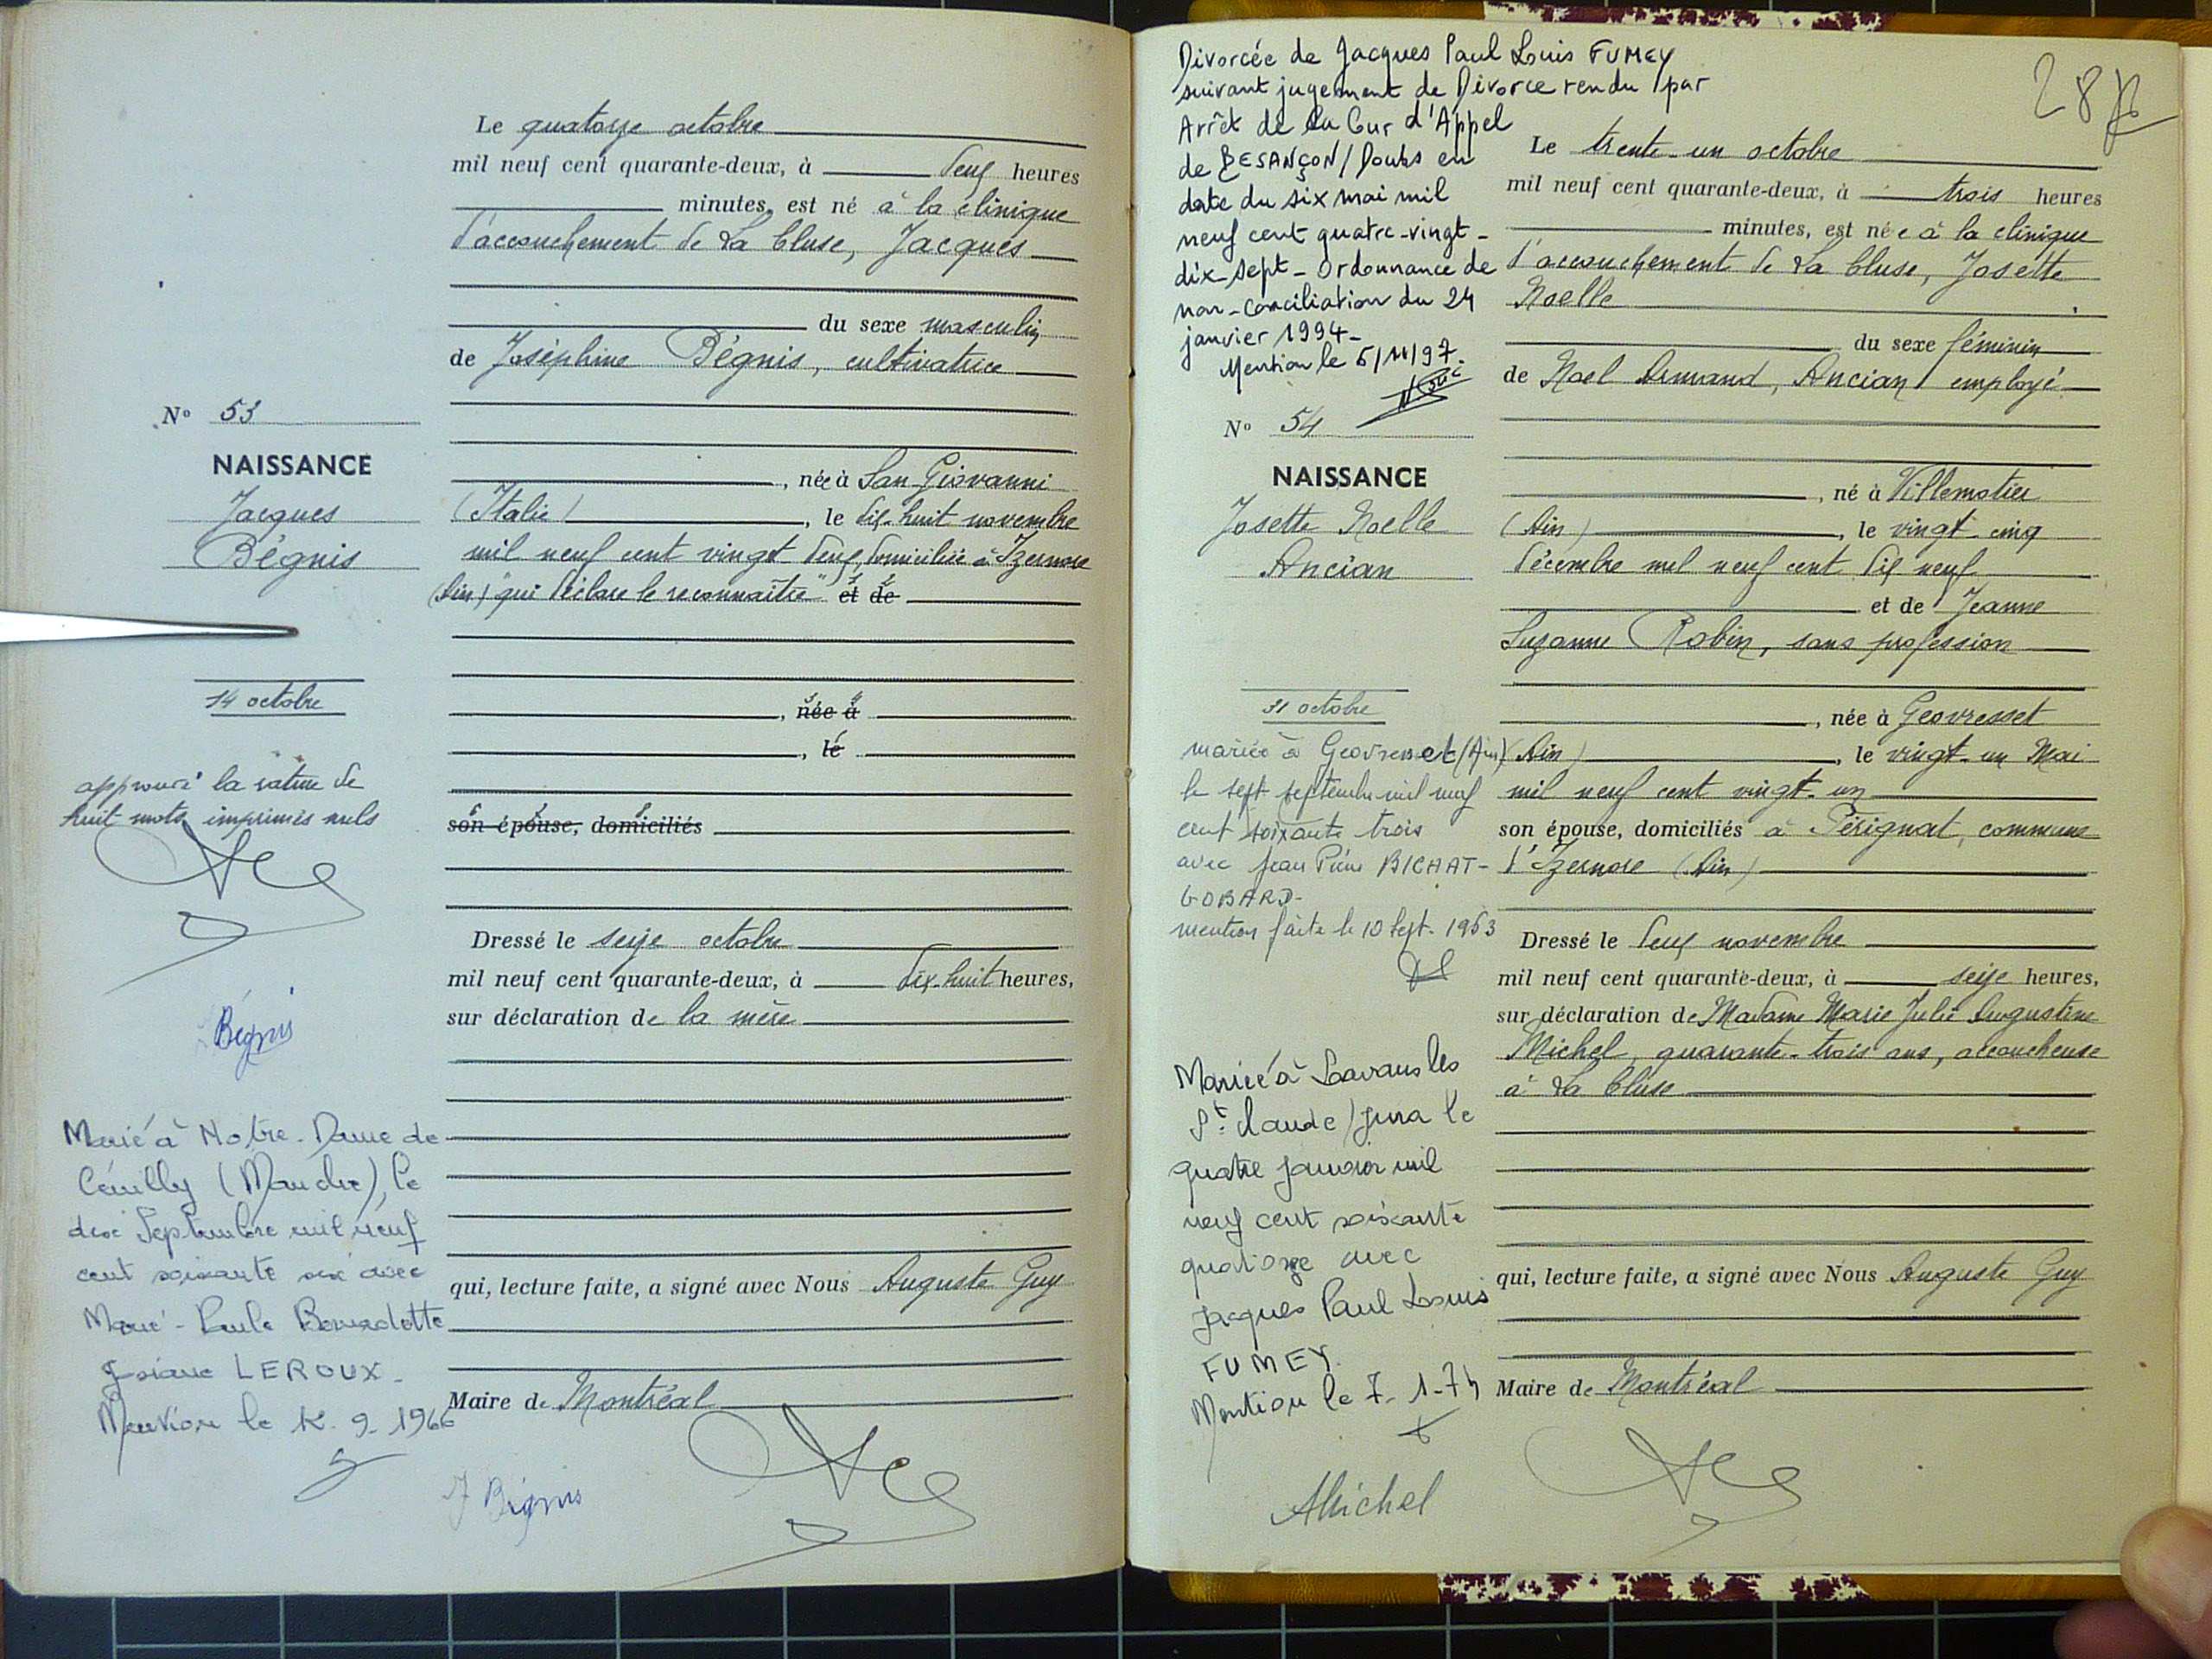 Le quatorze octobre
mil neuf cent quarante-deux, à deux heures
minutes, est né à la clinique
d'accouchement de La Cluse, Jacques
du sexe masculin
de Joséphine Bégnis, cultivatrice
N° 53
NAISSANCE
Jacques
Bégnis
, née à San Giovanni
(Italie), le dix-huit novembre
mil neuf cent vingt deux, domiciliée à Izernore
(Ain) "qui déclare le reconnaître" et de
14 octobre
, née à
, le
approuvé la rature de
huit mots imprimés nuls
son épouse, domiciliés
Dressé le seize octobre
mil neuf cent quarante-deux, à dix-huit heures,
sur déclaration de la mère
Bégnis
Marié à Notre-Dame de
Cénilly (Manche), le
dix Septembre mil neuf
cent soixante six avec
Marie-Paule Bernadette
Josiane LEROUX.
Mention le 12.9.1966
qui, lecture faite, a signé avec Nous Auguste Guy
Maire de Montréal
J Bégnis
Divorcée de Jacques Paul Louis FUMEY
suivant jugement de Divorce rendu par
Arrêt de la Cour d'Appel
de BESANÇON/Doubs en
date du six mai mil
neuf cent quatre-vingt-
dix-sept - Ordonnance de
non-conciliation du 24
janvier 1994-
Mention le 5/11/97.
28
Le trente-un octobre
mil neuf cent quarante-deux, à trois heures
minutes, est née à la clinique
d'accouchement de La Cluse, Josette
Noelle
du sexe féminin
de Noel Armand, Ancian employé
N° 54
NAISSANCE
Josette Noelle
Ancian
, né à Villemotier
(Ain), le vingt-cinq
décembre mil neuf cent dix neuf
et de Jeanne
Suzanne Robin, sans profession
31 octobre
, née à Geovresset
(Ain), le vingt-un Mai
mil neuf cent vingt-un
son épouse, domiciliés à Pérignat, commune
d'Izernore (Ain)
mariée à Geovresset (Ain)
le sept septembre mil neuf
cent soixante trois
avec Jean Pierre BICHAT-
GOBARD-
mention faite le 10 Sept. 1963
Dressé le deux novembre
mil neuf cent quarante-deux, à seize heures,
sur déclaration de Madame Marie Julie Augustine
Michel, quarante-trois ans, accoucheuse
à La Cluse
Mariée à Lavans les
St Claude/Jura le
quatre janvier mil
neuf cent soixante
quatorze avec
Jacques Paul Louis
FUMEY.
Mention le 7-1-74
qui, lecture faite, a signé avec Nous Auguste Guy
Maire de Montréal
AMichel